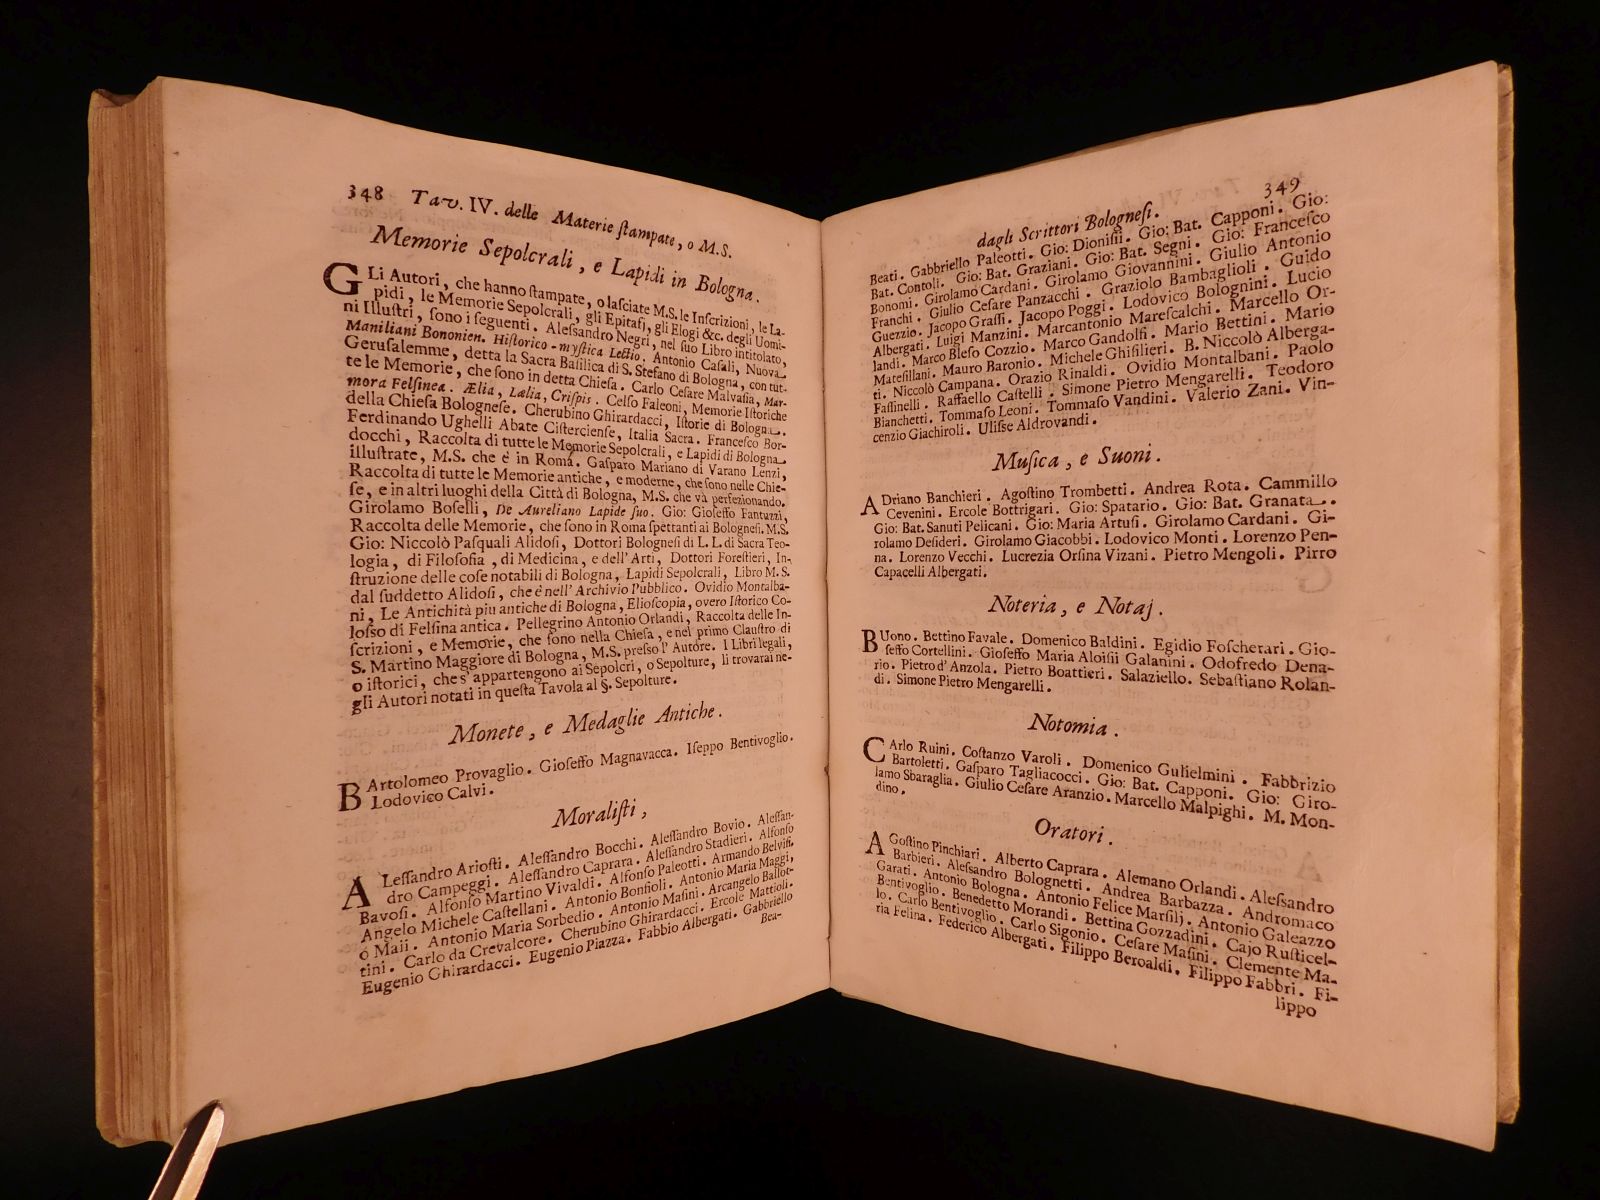 348 Tav. IV. delle Materie ſtampate, o M.S.
Memorie Sepolcrali, e Lapidi in Bologna.
GLi Autori, che hanno ſtampate, o laſciate M.S. le Inſcrizioni, le La-
pidi, le Memorie Sepolcrali, gli Epitafj, gli Elogi &c. degli Uomi-
ni Illuſtri, ſono i ſeguenti. Aleſſandro Negri, nel ſuo Libro intitolato,
Maniliani Bononien. Hiſtorico-myſtica Lectio. Antonio Caſali, Nuova
Geruſalemme, detta la Sacra Baſilica di S. Stefano di Bologna, con tut-
te le Memorie, che ſono in detta Chieſa. Carlo Ceſare Malvaſia, Mar-
mora Felſinea. Ælia, Lælia, Criſpis. Celſo Faleoni, Memorie Iſtoriche
della Chieſa Bologneſe. Cherubino Ghirardacci, Iſtorie di Bologna.
Ferdinando Ughelli Abate Ciſtercienſe, Italia Sacra. Franceſco Bor-
docchi, Raccolta di tutte le Memorie Sepolcrali, e Lapidi di Bologna
illuſtrate, M.S. che è in Roma. Gaſparo Mariano di Varano Lenzi,
Raccolta di tutte le Memorie antiche, e moderne, che ſono nelle Chie-
ſe, e in altri luoghi della Città di Bologna, M.S. che và perfezionando.
Girolamo Boſelli, De Aureliano Lapide ſuo. Gio: Gioſeffo Fantuzzi,
Raccolta delle Memorie, che ſono in Roma ſpettanti ai Bologneſi. M.S.
Gio: Niccolò Paſquali Alidoſi, Dottori Bologneſi di L.L. di Sacra Teo-
logia, di Filoſofia, di Medicina, e dell'Arti, Dottori Foreſtieri, In-
ſtruzione delle coſe notabili di Bologna, Lapidi Sepolcrali, Libro M.S.
dal ſuddetto Alidoſi, che è nell' Archivio Pubblico. Ovidio Montalba-
ni, Le Antichità piu antiche di Bologna, Elioſcopia, overo Iſtorico Co-
loſſo di Felſina antica. Pellegrino Antonio Orlandi, Raccolta delle In-
ſcrizioni, e Memorie, che ſono nella Chieſa, e nel primo Clauſtro di
S. Martino Maggiore di Bologna, M.S. preſſo l' Autore. I Libri legali,
o iſtorici, che s' appartengono ai Sepolcri, o Sepolture, li trovarai ne-
gli Autori notati in queſta Tavola al §. Sepolture.
Monete, e Medaglie Antiche.
BArtolomeo Provaglio. Gioſeffo Magnavacca. Iſeppo Bentivoglio.
Lodovico Calvi.
Moraliſti,
ALeſſandro Arioſti. Aleſſandro Bocchi. Aleſſandro Bovio. Aleſſan-
dro Campeggi. Aleſſandro Caprara. Aleſſandro Stadieri. Alfonſo
Bavoſi. Alfonſo Martino Vivaldi. Alfonſo Paleotti. Armando Belviſi.
Angelo Michele Caſtellani. Antonio Bonfioli. Antonio Maria Maggi,
ó Maii. Antonio Maria Sorbedio. Antonio Maſini. Arcangelo Ballot-
tini. Carlo da Crevalcore. Cherubino Ghirardacci. Ercole Mattioli.
Eugenio Ghirardacci. Eugenio Piazza. Fabbio Albergati. Gabbriello
Bea-
349
dagli Scrittori Bologneſi.
Beati. Gabbriello Paleotti. Gio: Dioniſii. Gio: Bat. Capponi. Gio:
Bat. Contoli. Gio: Bat. Graziani. Gio: Bat. Segni. Gio: Franceſco
Bonomi. Girolamo Cardani. Girolamo Giovannini. Giulio Antonio
Franchi. Giulio Ceſare Panzacchi. Graziolo Bambaglioli. Guido
Guezzio. Jacopo Graſſi. Jacopo Poggi. Lodovico Bolognini. Lucio
Albergati. Luigi Manzini. Marcantonio Mareſcalchi. Marcello Or-
landi. Marco Bleſo Cozzio. Marco Gandolfi. Mario Bettini. Mario
Mateſillani. Mauro Baronio. Michele Ghiſilieri. B. Niccolò Alberga-
ti. Niccolò Campana. Orazio Rinaldi. Ovidio Montalbani. Paolo
Faſſinelli. Raffaello Caſtelli. Simone Pietro Mengarelli. Teodoro
Bianchetti. Tommaſo Leoni. Tommaſo Vandini. Valerio Zani. Vin-
cenzio Giachiroli. Uliſſe Aldrovandi.
Muſica, e Suoni.
ADriano Banchieri. Agoſtino Trombetti. Andrea Rota. Cammillo
Cevenini. Ercole Bottrigari. Gio: Spatario. Gio: Bat. Granata.
Gio: Bat. Sanuti Pelicani. Gio: Maria Artuſi. Girolamo Cardani. Gi-
rolamo Deſideri. Girolamo Giacobbi. Lodovico Monti. Lorenzo Pen-
na. Lorenzo Vecchi. Lucrezia Orſina Vizani. Pietro Mengoli. Pirro
Capacelli Albergati.
Noteria, e Notaj.
BUono. Bettino Favale. Domenico Baldini. Egidio Foſcherari. Gio-
ſeffo Cortellini. Gioſeffo Maria Aloiſii Galanini. Odofredo Dena-
rio. Pietro d' Anzola. Pietro Boattieri. Salaziello. Sebaſtiano Rolan-
di. Simone Pietro Mengarelli.
Notomia.
CArlo Ruini. Coſtanzo Varoli. Domenico Gulielmini. Fabbrizio
Bartoletti. Gaſparo Tagliacocci. Gio: Bat. Capponi. Gio: Giro-
lamo Sbaraglia. Giulio Ceſare Aranzio. Marcello Malpighi. M. Mon-
dino.
Oratori.
AGoſtino Pinchiari. Alberto Caprara. Alemano Orlandi. Aleſſandro
Barbieri. Aleſſandro Bolognetti. Andrea Barbazza. Andromaco
Garati. Antonio Bologna. Antonio Felice Marſilj. Antonio Galeazzo
Bentivoglio. Benedetto Morandi. Bettina Gozzadini. Cajo Ruſticel-
lo. Carlo Bentivoglio. Carlo Sigonio. Ceſare Maſini. Clemente Ma-
ria Felina. Federico Albergati. Filippo Beroaldi. Filippo Fabbri. Fi-
lippo